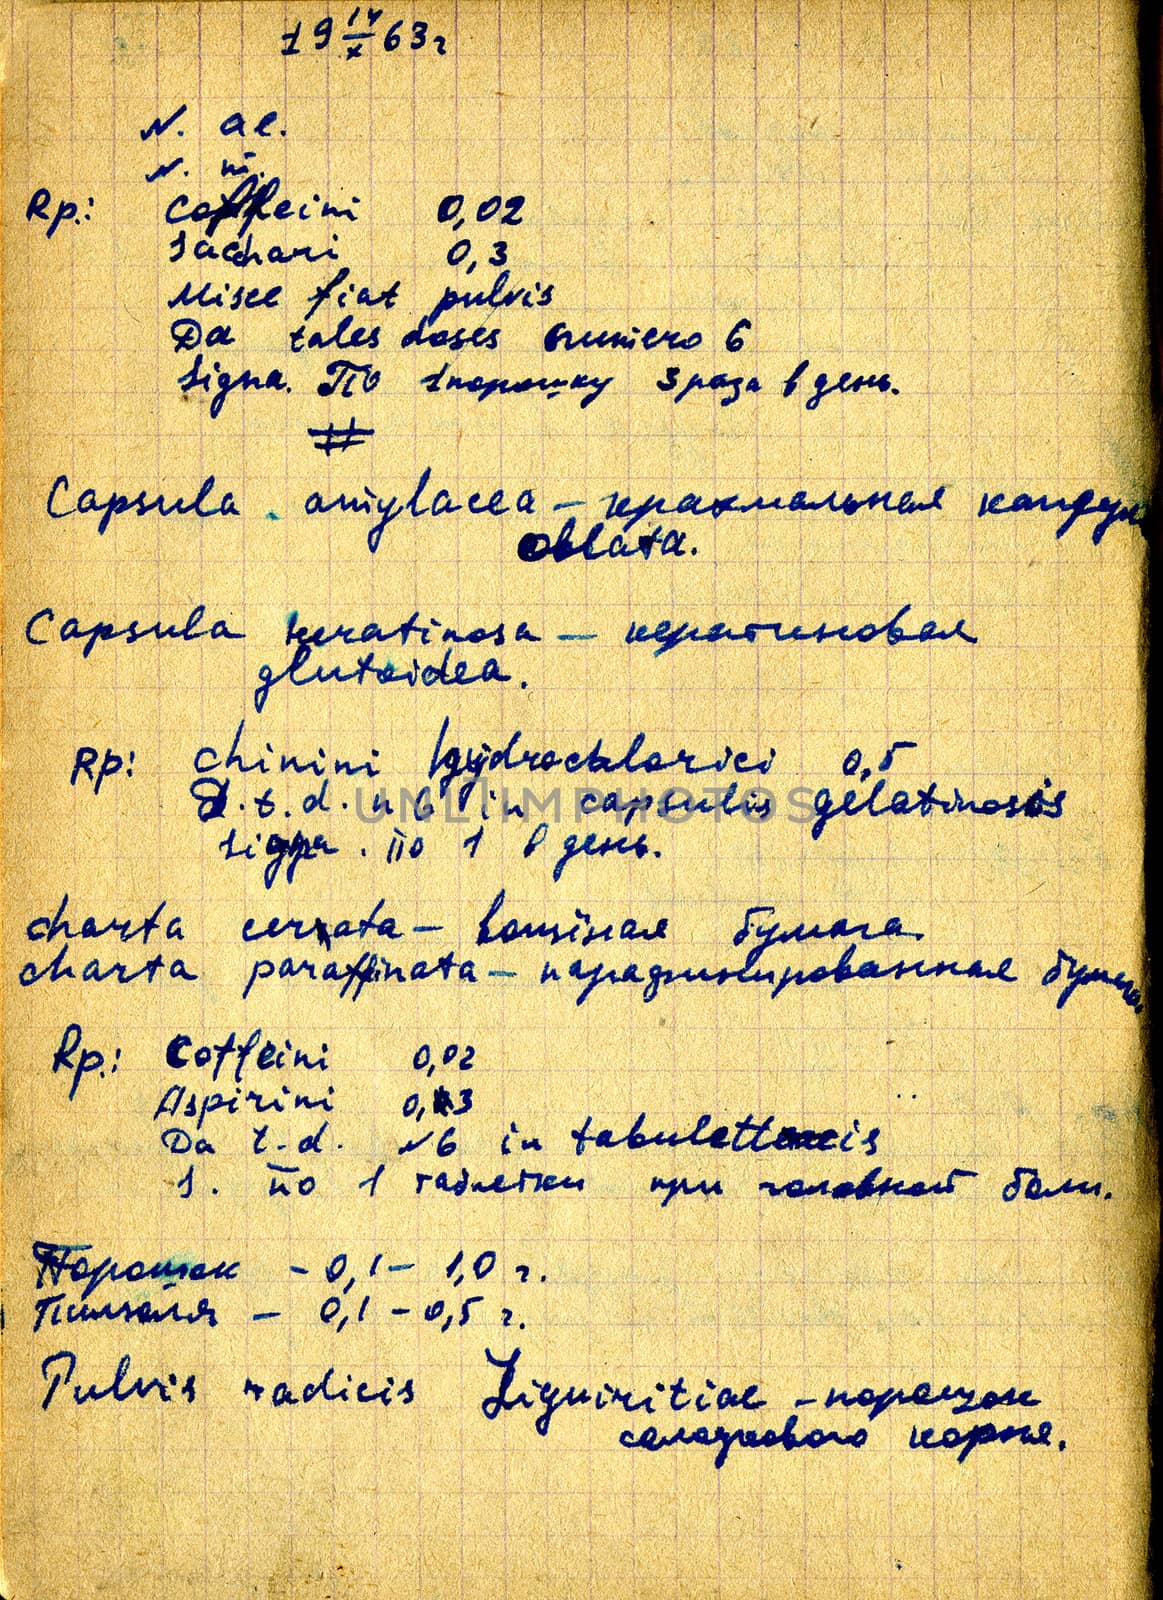 19 IV/X 63 г
N. ae.
N. m.
Rp.: Coffeini 0,02
Sacchari 0,3
Misce fiat pulvis
Da tales doses numero 6
Signa. По 1 порошку 3 раза в день.
#
Capsula amylacea – крахмальная капсула
oblata.
Capsula keratinosa – кератиновая
glutoidea.
Rp: Chinini hydrochlorici 0,5
D. t. d. n 6 in capsulis gelatinosis
Signa. По 1 в день.
UNLIMPHOTOS
charta cerata – вощёная бумага.
charta paraffinata – парафинированная бумага.
Rp.: Coffeini 0,02
Aspirini 0,3
Da t. d. N 6 in tabulettis
S. По 1 таблетки при головной боли.
Порошок – 0,1 – 1,0 г.
Пилюля – 0,1 – 0,5 г.
Pulvis radicis Liquiritiae – порошок
солодкового корня.